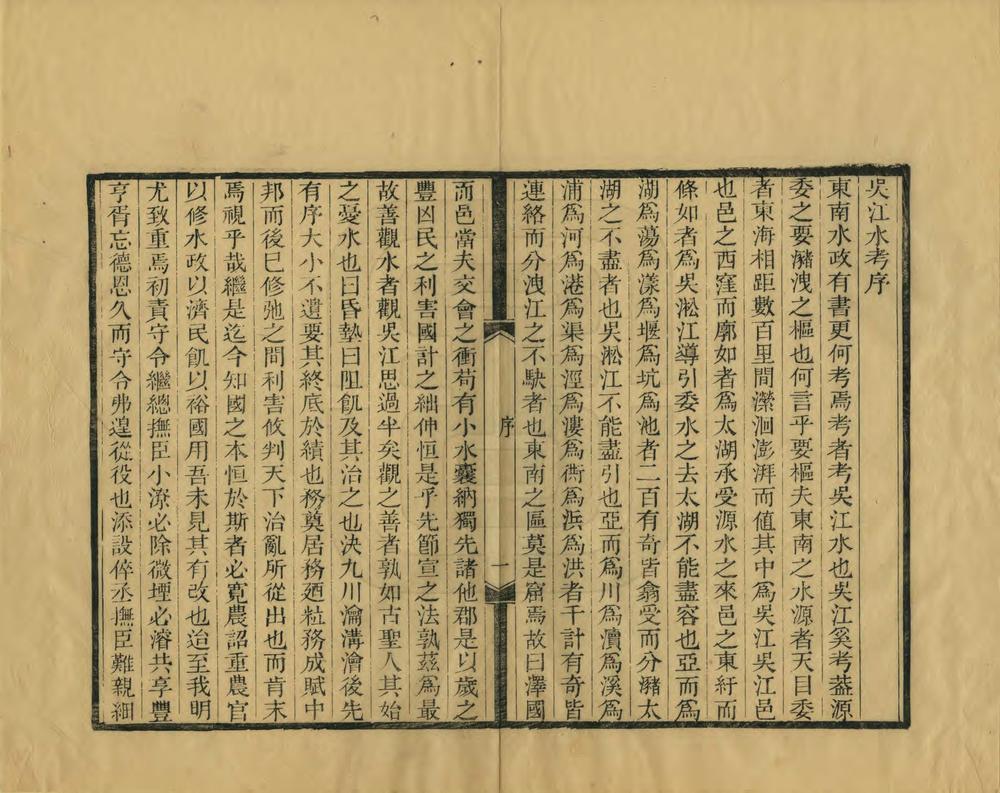 吳江水考序
東南水政有書更何考焉考者考吳江水也吳江奚考葢源
委之要瀦洩之樞也何言乎要樞夫東南之水源者天目委
者東海相距數百里間瀠洄澎湃而值其中為吳江吳江邑
也邑之西窪而廓如者為太湖承受源水之來邑之東紆而
條如者為吳淞江導引委水之去太湖不能盡容也亞而為
湖為蕩為漾為堰為坑為池者二百有奇皆翕受而分瀦太
湖之不盡者也吳淞江不能盡引也亞而為川為瀆為溪為
浦為河為港為渠為涇為漊為衖為浜為洪者千計有奇皆
連絡而分洩江之不駃者也東南之區莫是窟焉故曰澤國
序
一
而邑當夫交會之衝苟有小水囊納獨先諸他郡是以歲之
豐凶民之利害國計之絀伸恒是乎先節宣之法孰茲為最
故善觀水者觀吳江思過半矣觀之善者孰如古聖人其始
之憂水也曰昏墊曰阻飢及其治之也決九川瀹溝澮後先
有序大小不遺要其終底於績也務奠居務廼粒務成賦中
邦而後已修弛之間利害攸判天下治亂所從出也而肯末
焉視乎哉繼是迄今知國之本恒於斯者必寬農詔重農官
以修水政以濟民飢以裕國用吾未見其有改也迨至我明
尤致重焉初責守令繼總撫臣小潦必除微堙必濬共享豐
亨胥忘德恩久而守令弗遑從役也添設倅丞撫臣難親細